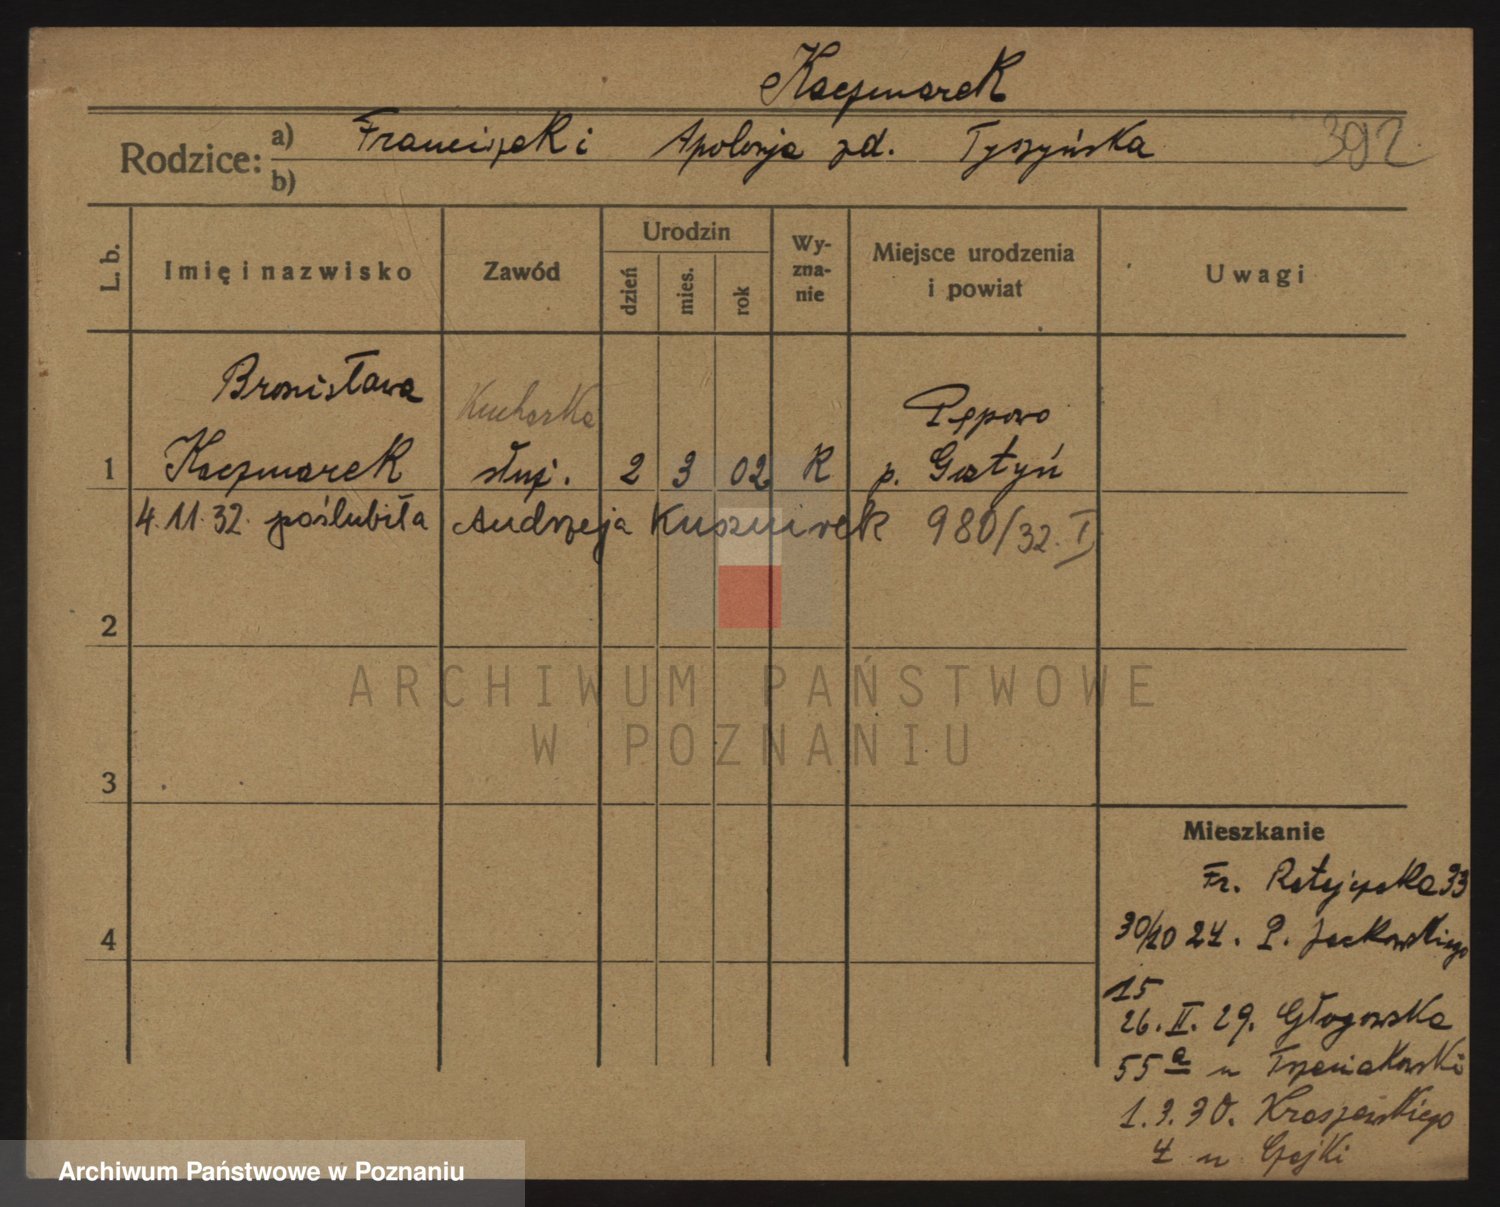 Kaczmarek
Rodzice: a) Franciszek i Apolonja zd. Tyszyńska 392
b)
L. b. Imię i nazwisko Zawód Urodzin dzień mies. rok Wyznanie Miejsce urodzenia i powiat Uwagi
Bronisława Kucharka Pępowo
1 Kaczmarek służ. 2 3 02 R p. Gostyń
4.11.32. poślubiła Andrzeja 980/32. I
2
ARCHIWUM PAŃSTWOWE
W POZNANIU
3
Mieszkanie
Fr. Ratajczaka 33
4
30/10 24. P. Jackowskiego
15
26. II. 29. Głogowska
55a u
1.3.30. Kraszewskiego
4 u Czajki
Archiwum Państwowe w Poznaniu